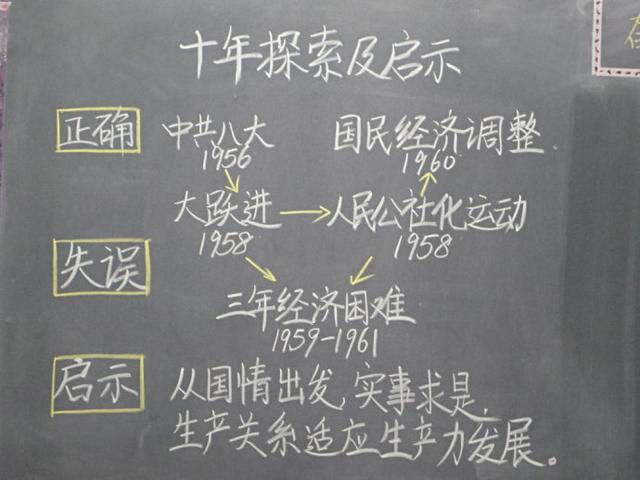 十年探索及启示
正确 中共八大 国民经济调整
1956 1960
大跃进 人民公社化运动
1958 1958
失误
三年经济困难
1959-1961
启示 从国情出发,实事求是,
生产关系适应生产力发展。